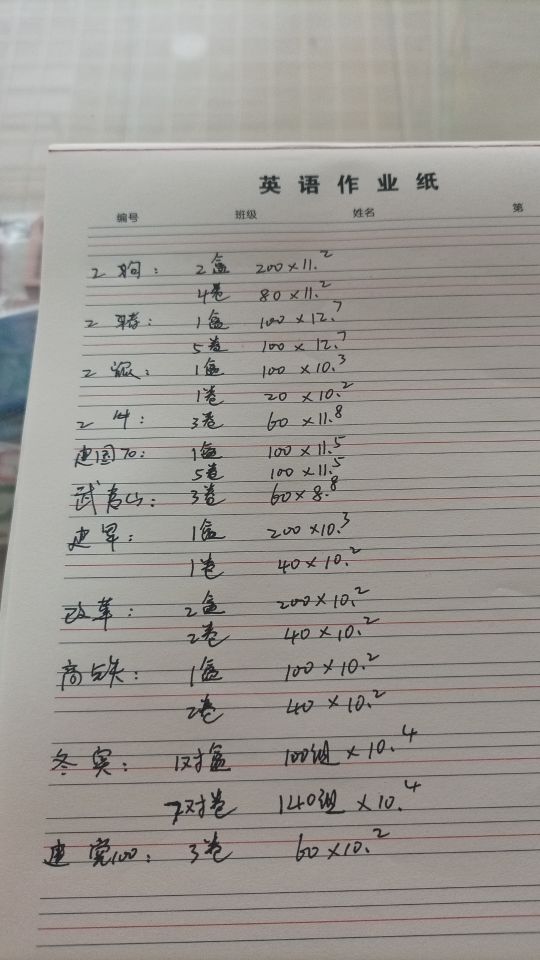 英语作业纸
编号 班级 姓名 第
2狗: 2盒 200×11.2
4卷 80×11.2
2猪: 1盒 100×12.7
5卷 100×12.7
2鼠: 1盒 100×10.3
1卷 20×10.2
2牛: 3卷 60×11.8
建国70: 1盒 100×11.5
5卷 100×11.5
武夷山: 3卷 60×8.8
建军: 1盒 200×10.3
1卷 40×10.2
改革: 2盒 200×10.2
2卷 40×10.2
高铁: 1盒 100×10.2
2卷 40×10.2
冬奥: 1对盒 100组×10.4
7对卷 140组×10.4
建党100: 3卷 60×10.2